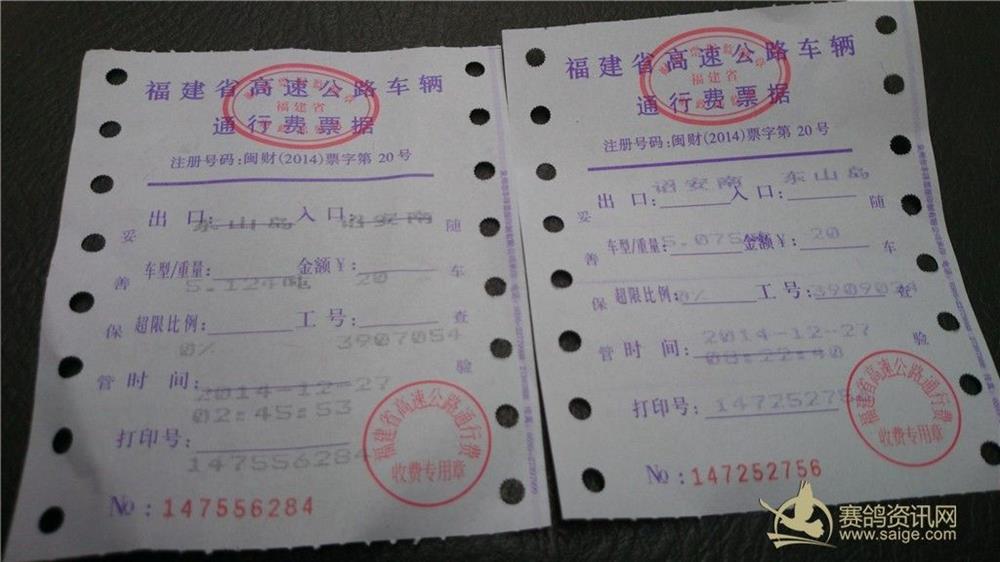 福建省高速公路车辆
通行费票据
福建省
注册号码:闽财(2014)票字第 20 号
出 口: 东山岛 入 口: 诏安南
车型/重量: 5.124吨 金额￥: 20
超限比例: 0% 工 号: 3907054
时 间: 2014-12-27
02:45:53
打印号: 147556284
妥善保管
随车查验
福建省高速公路通行费
收费专用章
№: 147556284
福建省高速公路车辆
通行费票据
福建省
注册号码:闽财(2014)票字第 20 号
出 口: 诏安南 入 口: 东山岛
车型/重量: 5.075 金额￥: 20
超限比例: 0% 工 号:
时 间: 2014-12-27
08:22:40
打印号:
妥善保管
随车查验
福建省高速公路通行费
收费专用章
№: 147252756
赛鸽资讯网
www.saige.com